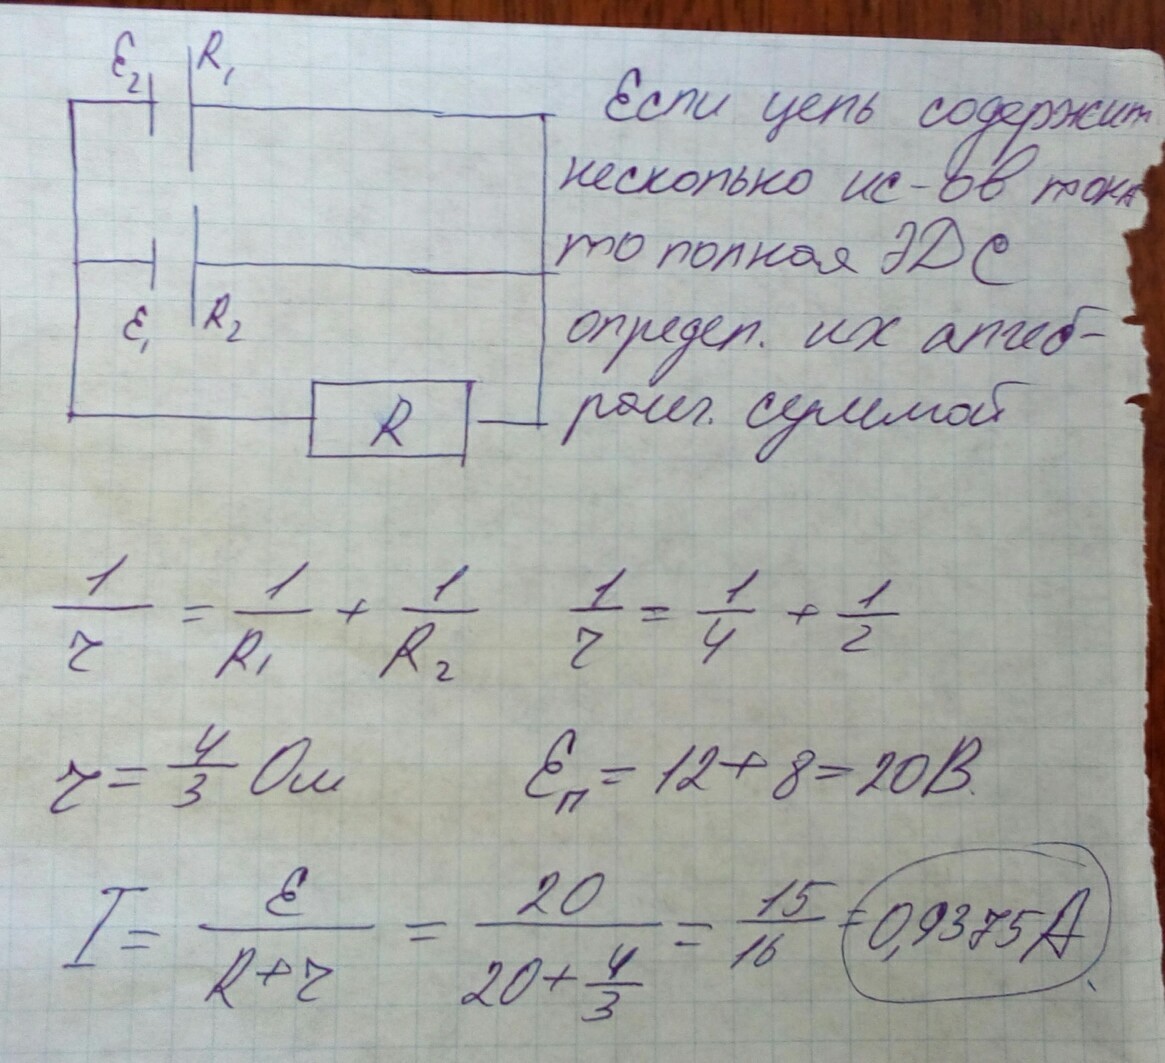 Ɛ₂ R₁
Если цепь содержит
несколько ис-ов тока
то полная ЭДС
Ɛ₁ R₂
определ. их алгеб-
раич. суммой
R
1/r = 1/R₁ + 1/R₂ 1/r = 1/4 + 1/2
r = 4/3 Ом Ɛп = 12 + 8 = 20В.
I = Ɛ/(R+r) = 20/(20+4/3) = 15/16 = 0,9375А